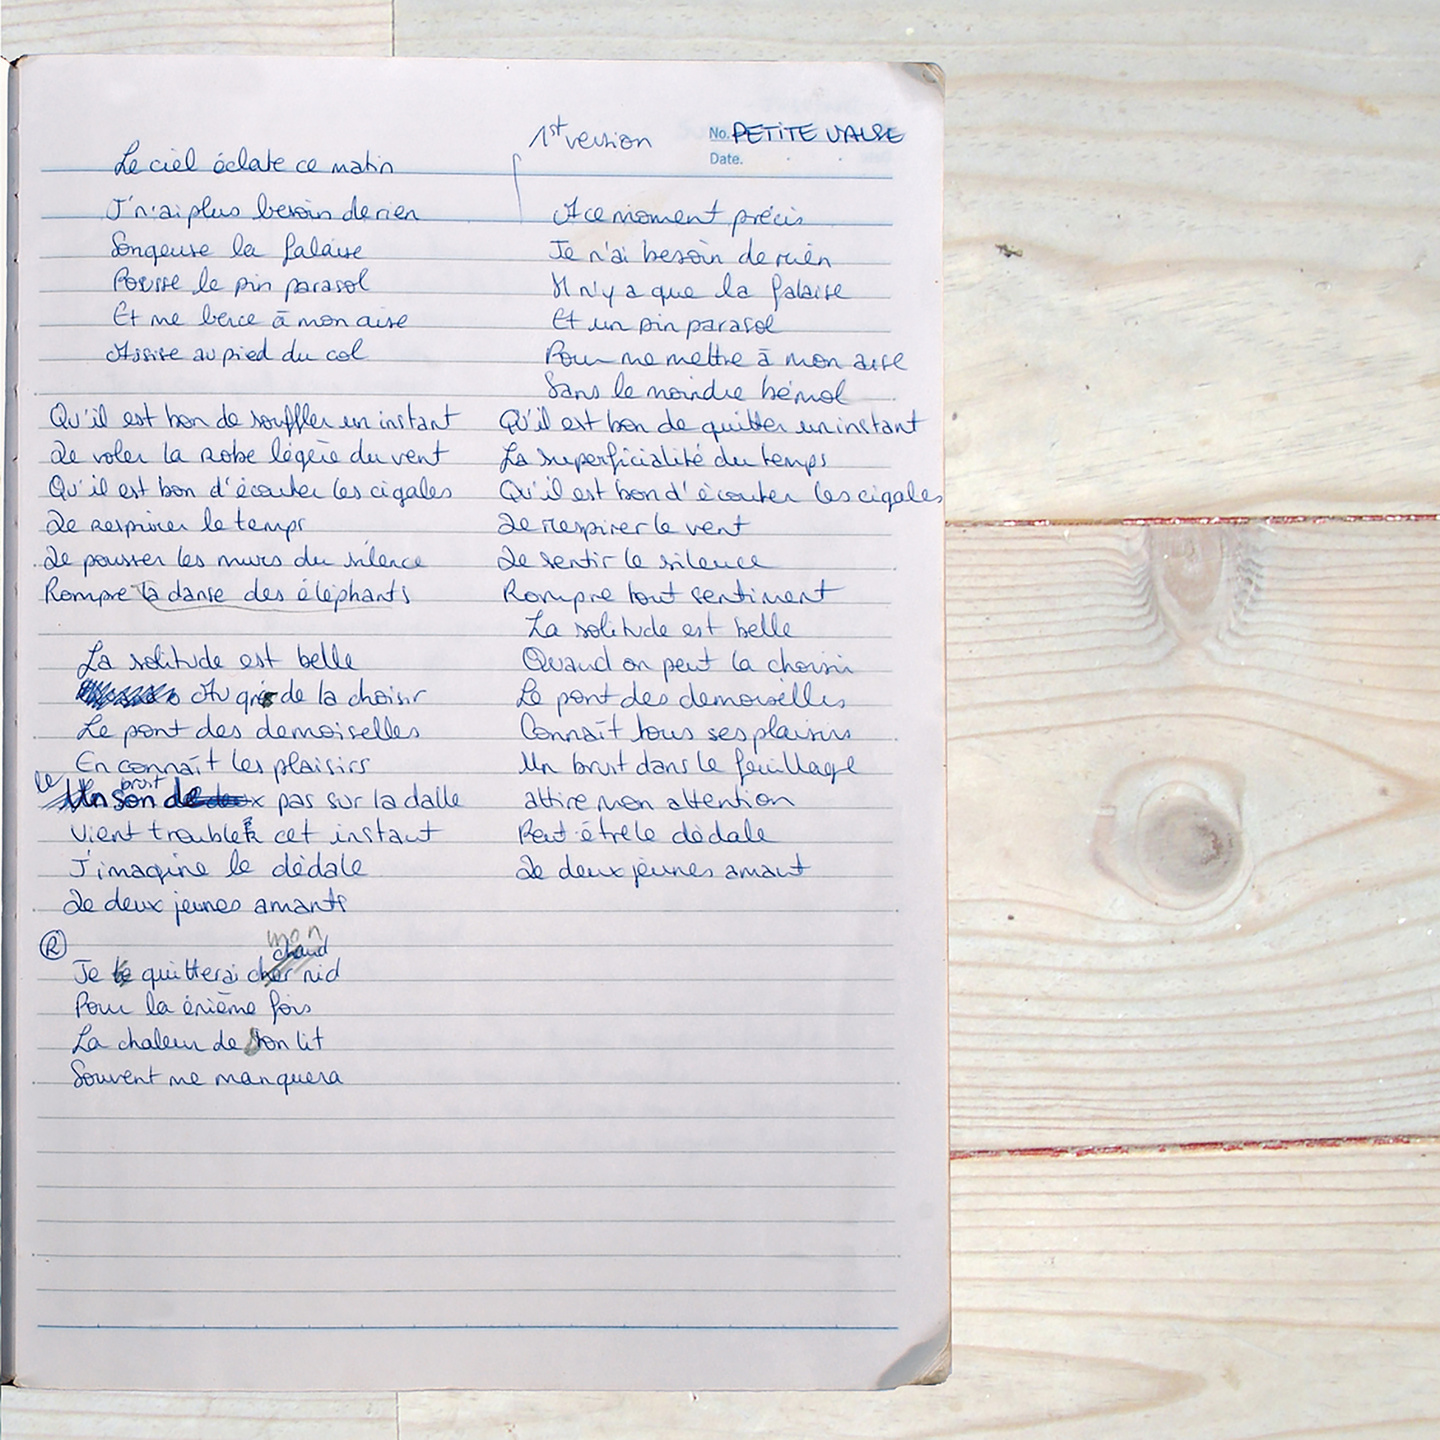 1st version
No. PETITE VALSE
Date.
Le ciel éclate ce matin
J'n'ai plus besoin de rien
Songeuse la falaise
Pousse le pin parasol
Et me berce à mon aise
Assise au pied du col
Qu'il est bon de souffler un instant
De voler la robe légère du vent
Qu'il est bon d'écouter les cigales
De respirer le temps
De pousser les murs du silence
Rompre la danse des éléphants
La solitude est belle
Au gré de la choisir
Le pont des demoiselles
En connaît les plaisirs
Le bruit
Un son de deux pas sur la dalle
Vient troubler cet instant
J'imagine le dédale
De deux jeunes amants
R
mon
chaud
Je te quitterai cher nid
Pour la énième fois
La chaleur de ton lit
Souvent me manquera
A ce moment précis
Je n'ai besoin de rien
Il n'y a que la falaise
Et un pin parasol
Pour me mettre à mon aise
Sans le moindre bémol
Qu'il est bon de quitter un instant
La superficialité du temps
Qu'il est bon d'écouter les cigales
De respirer le vent
De sentir le silence
Rompre tout sentiment
La solitude est belle
Quand on peut la choisir
Le pont des demoiselles
Connaît tous ses plaisirs
Un bruit dans le feuillage
attire mon attention
Peut-être le dédale
De deux jeunes amant